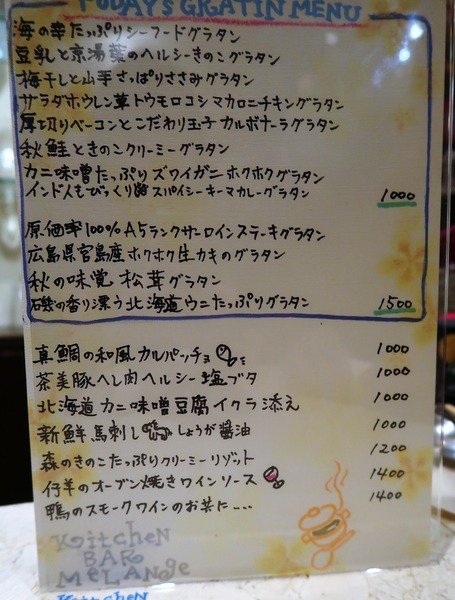 TODAY'S GRATIN MENU
海の幸たっぷりシーフードグラタン
豆乳と京湯葉のヘルシーきのこグラタン
梅干しと山芋さっぱりささみグラタン
サラダホウレン草トウモロコシマカロニチキングラタン
厚切りベーコンとこだわり玉子カルボナーラグラタン
秋鮭ときのこクリーミーグラタン
カニ味噌たっぷりズワイガニホクホクグラタン
インド人もびっくり スパイシーキーマカレーグラタン 1000
原価率100%A5ランクサーロインステーキグラタン
広島県宮島産ホクホク生カキのグラタン
秋の味覚 松茸グラタン
磯の香り漂う北海道ウニたっぷりグラタン 1500
真鯛の和風カルパッチョ 1000
茶美豚ヘレ肉ヘルシー塩ブタ 1000
北海道カニ味噌豆腐イクラ添え 1000
新鮮馬刺し しょうが醤油 1000
森のきのこたっぷりクリーミーリゾット 1200
仔羊のオーブン焼きワインソース 1400
鴨のスモークワインのお共に... 1400
KitcheN
BAR
MeLANGe
KitcheN